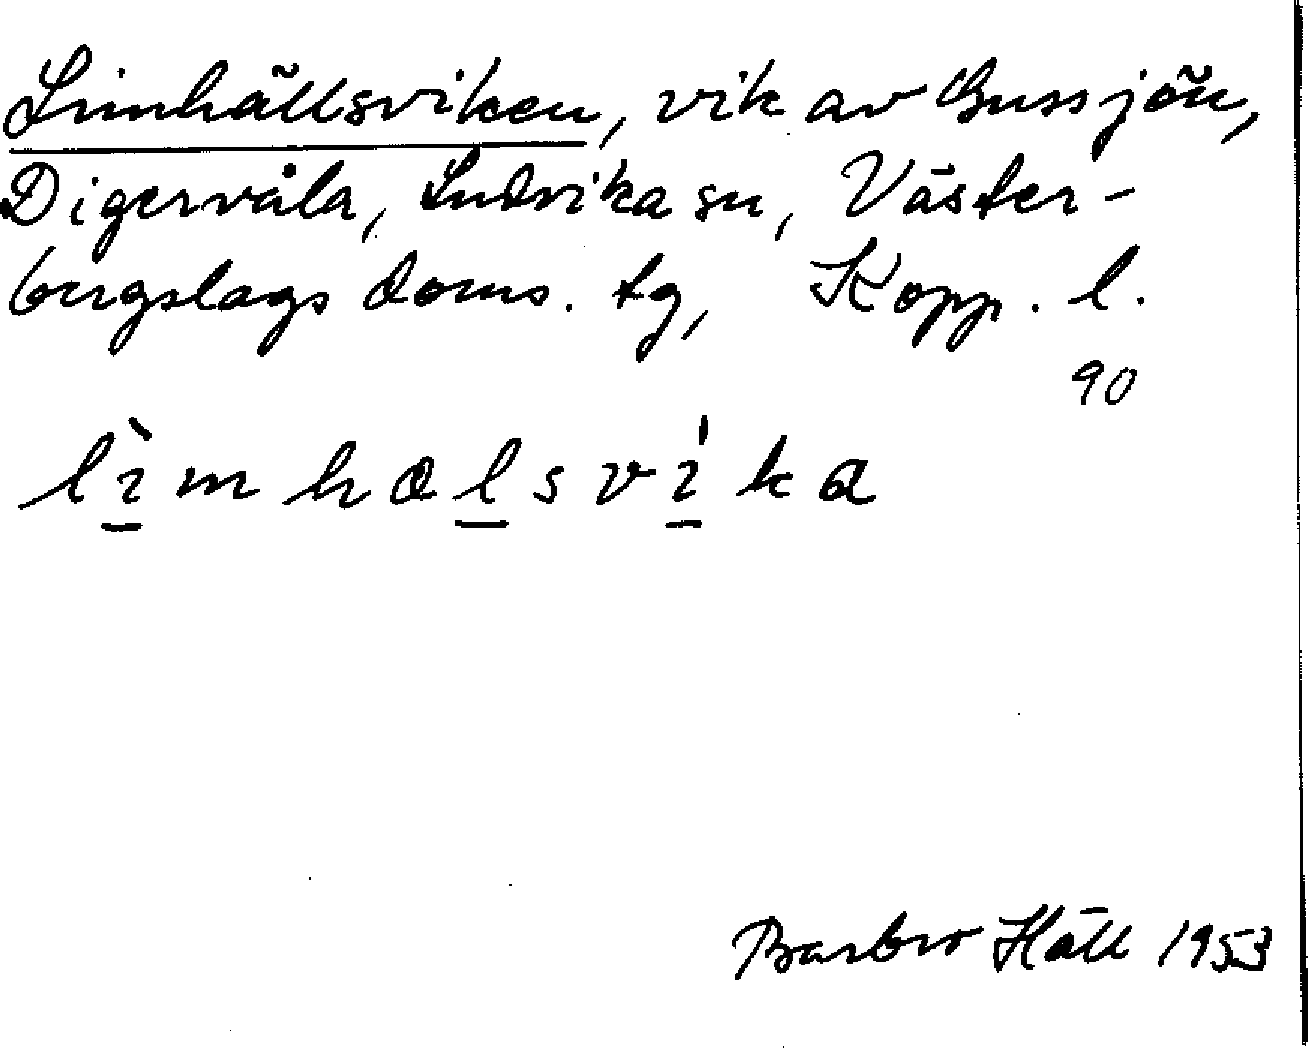 Limhällsviken, vik av Gussjön,
Digervåla, Ludvika sn, Väster-
bergslags doms. tg, Kopp. l.
90
lìmhɑlsvi̍ka
Barbro Häll 1953